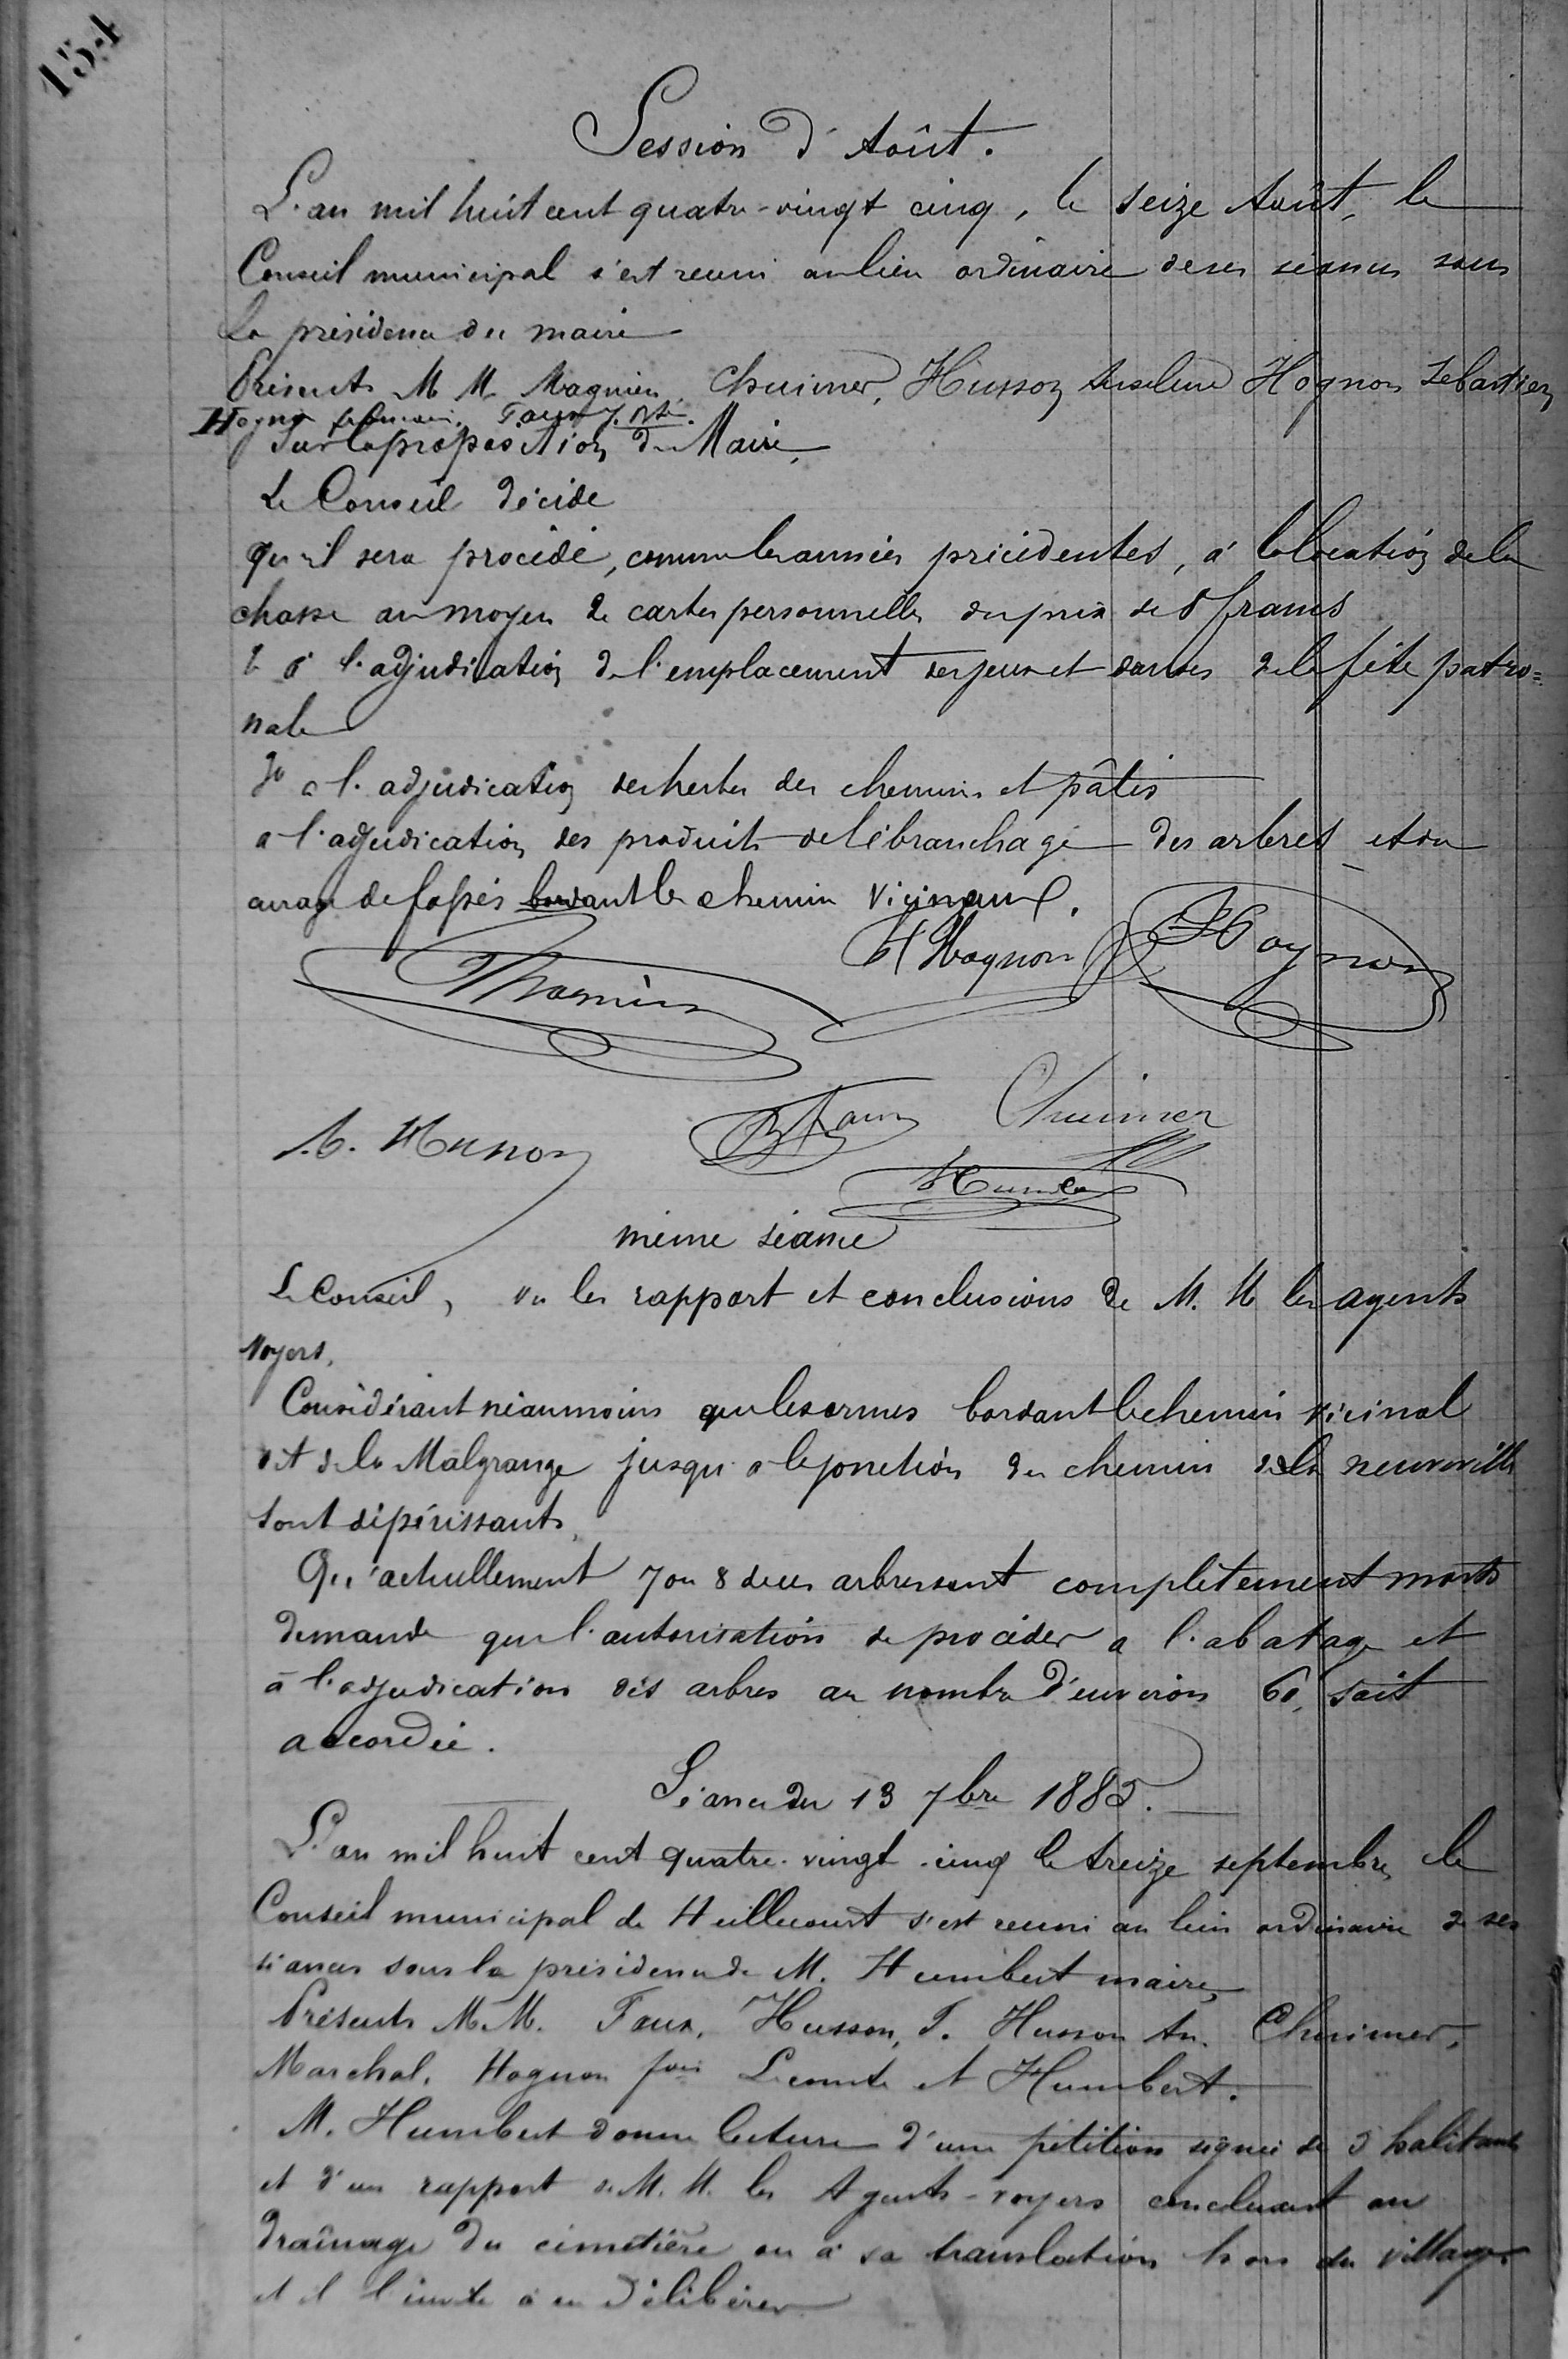 154
Session d'Août.
L'an mil huit cent quatre-vingt cinq, le seize Août, le
Conseil municipal s'est reuni au lieu ordinaire de ses séances sous
la présidence du maire
Présents M M Magnien, Chuimer, Husson Anselme Hognon Sebastien
Hognon Faux J. Bte.
Sur la proposition du Maire,
Le Conseil décide
qu'il sera procédé, comme les années précédentes, à la location de la
chasse au moyen de cartes personnelles du prix de 5 francs
2° à l'adjudication de l'emplacement des jeux et danses de la fête patro=
nale
3° à l'adjudication des herbes des chemins et pâtis
a l'adjudication des produits de l'ébranchage des arbres et du
curage de fossés bordant les chemin vicinaux.
Magnien H Hognon Hognon
A. Husson B Faux Chuimer
Humbert
même séance
Le Conseil, vu les rapport et conclusions de M. M les agents
voyers,
Considérant néanmoins que les ormes bordant le chemin vicinal
dit de la Malgrange jusqu'a la jonction du chemin de la neuveville
sont dépérissants,
Qu'actuellement 7 ou 8 de ces arbres sont complètement morts
demande que l'autorisation de procéder a l'abatage et
à l'adjudication des arbres au nombre d'environ 60, soit
accordée.
Séance du 13 7bre 1885.
L'an mil huit cent quatre-vingt-cinq le treize septembre, le
Conseil municipal de Heillecourt s'est reuni au lieu ordinaire de ses
séances sous la présidence de M. Humbert maire,
Présents M.M. Faux, Husson, J. Husson An. Chuimer,
Marchal, Hognon fois Lecomte et Humbert.
M. Humbert donne lecture d'une pétition signée de 5 habitants
et d'un rapport de M. M. les Agents-voyers concluant au
draînage du cimetière ou à sa translation hors du village
et il l'invite à en délibérer